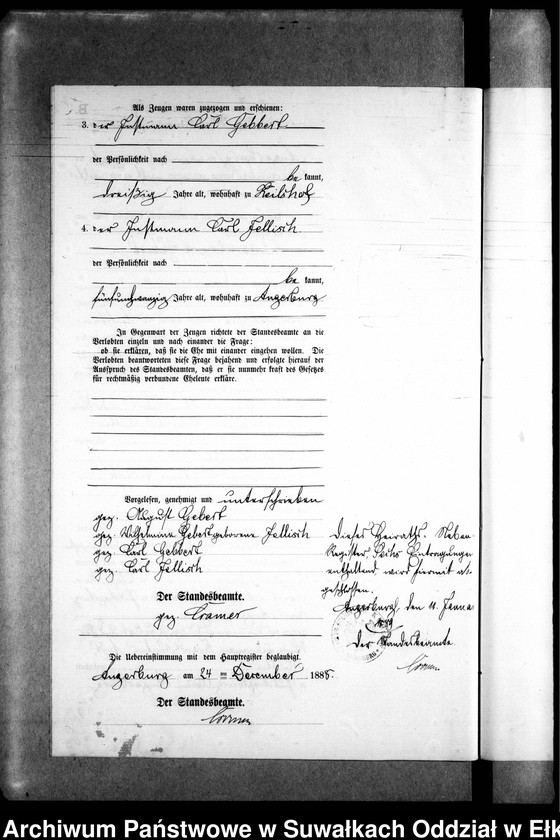 Als Zeugen waren zugezogen und erschienen:
3. der Instmann Carl Gebbert
der Persönlichkeit nach
be kannt,
dreißig Jahre alt, wohnhaft zu Reilshof
4. der Instmann Carl Jellisch
der Persönlichkeit nach
be kannt,
fünfundzwanzig Jahre alt, wohnhaft zu Angerburg
In Gegenwart der Zeugen richtete der Standesbeamte an die
Verlobten einzeln und nach einander die Frage:
ob sie erklären, daß sie die Ehe mit einander eingehen wollen. Die
Verlobten beantworteten diese Frage bejahend und erfolgte hierauf der
Ausspruch des Standesbeamten, daß er sie nunmehr kraft des Gesetzes
für rechtmäßig verbundene Eheleute erkläre.
Vorgelesen, genehmigt und unterschrieben
gez. August Gebert
gez. Wilhelmine Gebert geborene Jellisch
gez. Carl Gebbert
gez. Carl Jellisch
Der Standesbeamte.
gez. Cramer
Die Uebereinstimmung mit dem Hauptregister beglaubigt.
Angerburg am 24 ten December 1888.
Der Standesbeamte.
Cramer
Dieses Heiraths-Neben-
Register, sechs Eintragungen
enthaltend wird hiermit ab-
geschlossen.
Angerburg, den 11. Janua
1889
Der Standesbeamte.
Cramer
Archiwum Państwowe w Suwałkach Oddział w Ełk